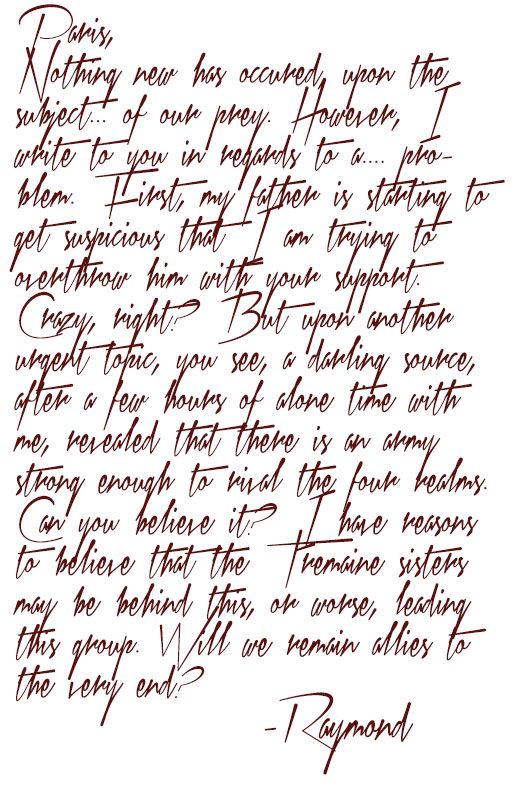 Paris,
Nothing new has occured, upon the
subject... of our prey. However, I
write to you in regards to a.... pro-
blem. First, my father is starting to
get suspicious that I am trying to
overthrow him with your support.
Crazy, right? But upon another
urgent topic, you see, a darling source,
after a few hours of alone time with
me, revealed that there is an army
strong enough to rival the four realms.
Can you believe it? I have reasons
to believe that the Tremaine sisters
may be behind this, or worse, leading
this group. Will we remain allies to
the very end?
-Raymond